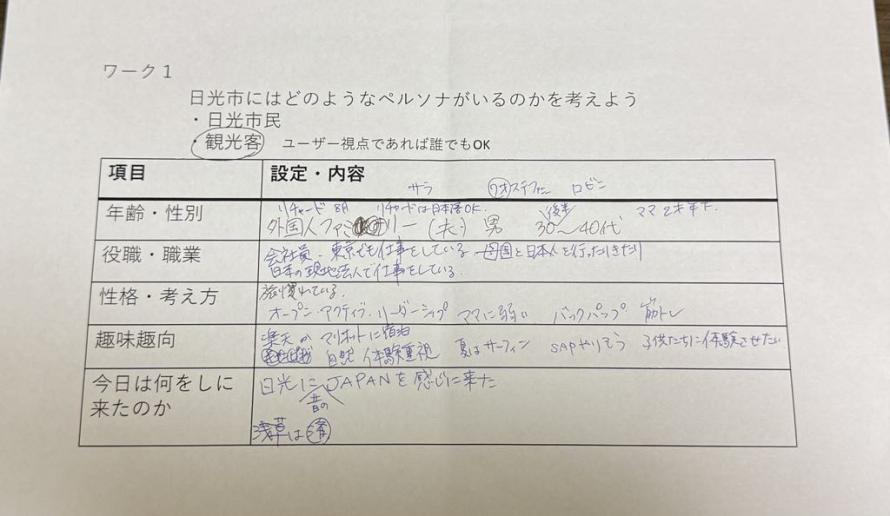 ワーク1
日光市にはどのようなペルソナがいるのかを考えよう
・日光市民
・観光客 ユーザー視点であれば誰でもOK
項目 設定・内容
サラ ステファニー ロビン
年齢・性別
リチャード リチャードは日本語OK. 後半 ママ2才年下.
外国人ファミリー (夫) 男 30〜40代
役職・職業
会社員. 東京でも仕事をしている 国と日本を行ったりきたり
日本の現地法人で仕事をしている.
性格・考え方
旅慣れている.
オープン・アクティブ・リーダーシップ ママに弱い バックパップ 筋トレ
趣味趣向
楽天か マリオットに宿泊
自然 体験重視 夏はサーフィン SAPやりそう 子供たちに体験させたい
今日は何をしに来たのか
日光に昔のJAPANを感じに来た
浅草は済